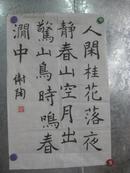 人閑桂花落夜
靜春山空月出
驚山鳥時鳴春
澗中 谢陶